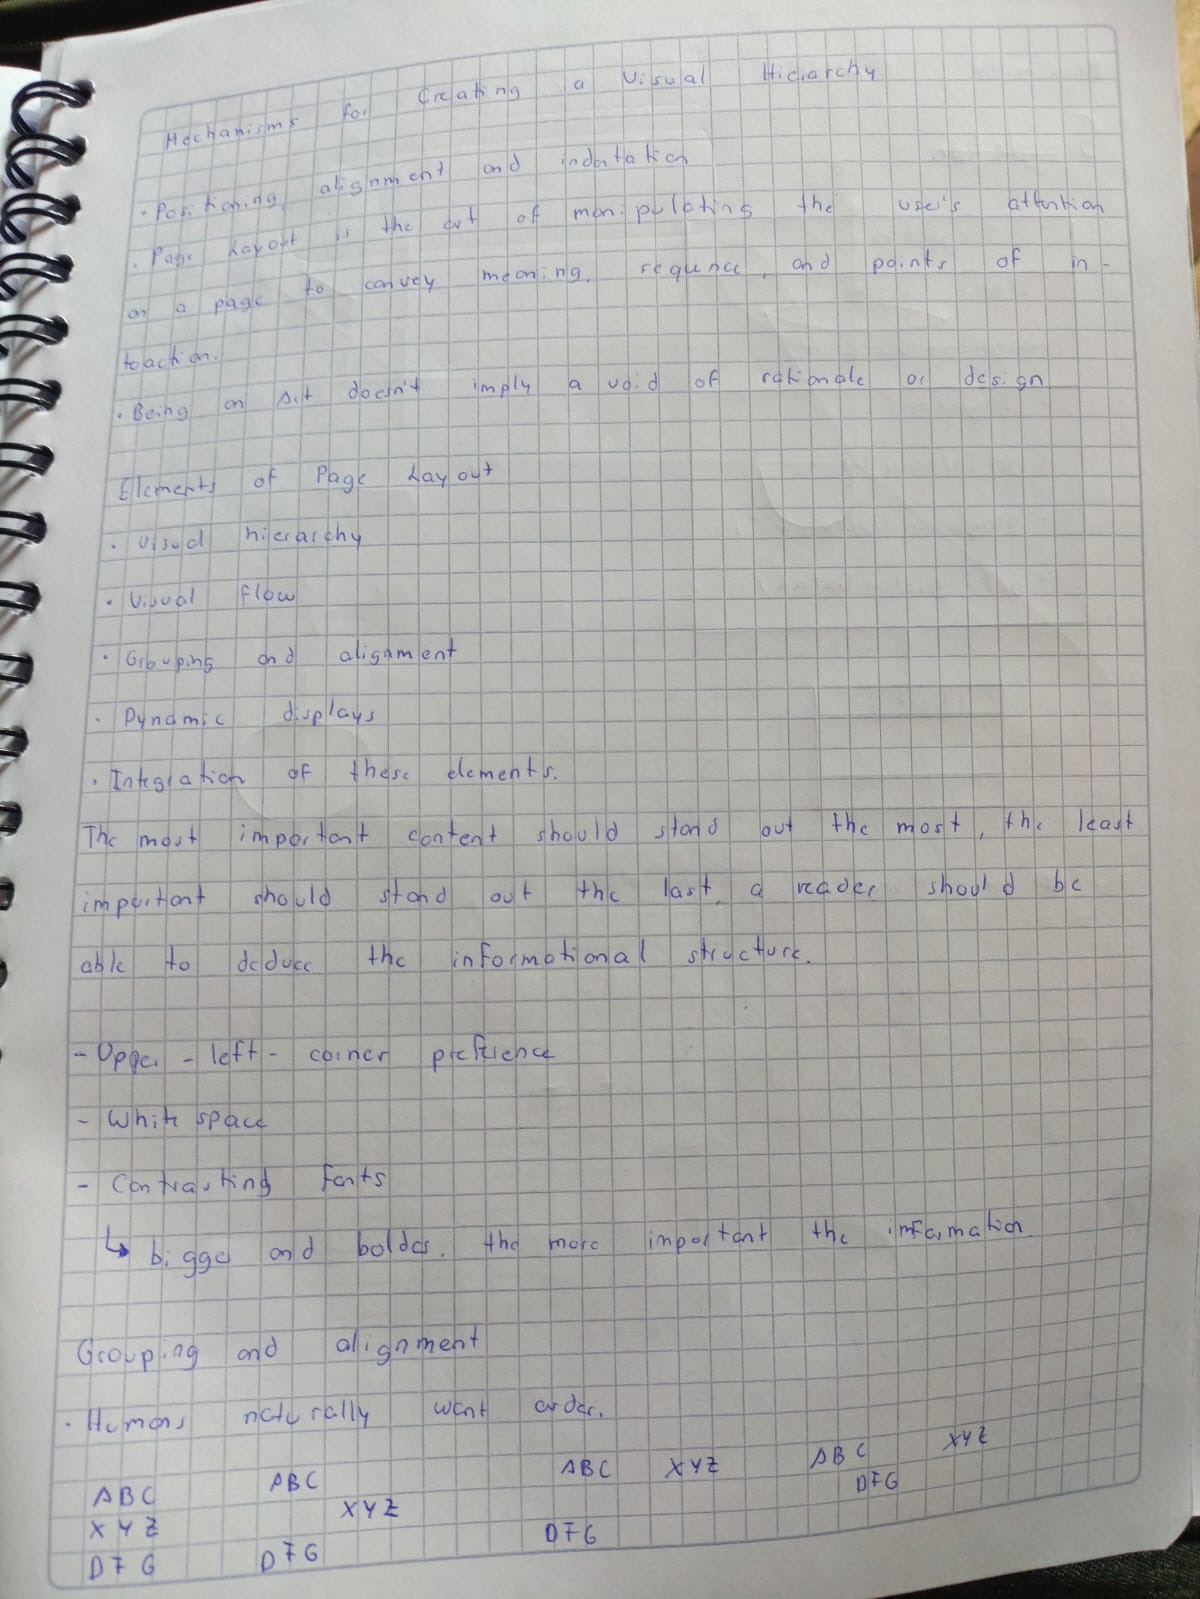 Mechanisms for Creating a Visual Hierarchy
· Positioning, alignment and indatation
· Page Layout is the art of manipulating the user's attention
on a page to convey meaning, sequence, and points of in-
teaction.
· Being an Art doesn't imply a void of rationale or design
Elements of Page Layout
· Visual hierarchy
· Visual flow
· Grouping and alignment
· Dynamic displays
· Integration of these elements.
The most important content should stand out the most, the least
important should stand out the last, a reader should be
able to deduce the informational structure.
- Upper - left - corner preference
- White space
- Contrasting fonts
↳ bigger and bolder, the more important the information.
Grouping and alignment
· Humans naturally want order.
ABC ABC ABC XYZ ABC XYZ
XYZ XYZ DFG
DFG DFG DFG